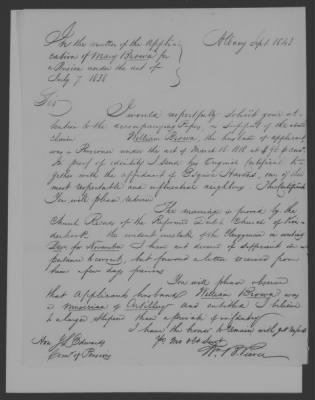 In the matter of the Appli-
cation of Mary Brown for
a Pension under the act of
July 7, 1838
Albany Sept 1843
Sir
I would respectfully solicit your at-
tention to the accompanying Papers in support of the above
claim. William Brown, the husband of applicant
was a Pensioner under the act of March 18, 1818 at $96 per ann.
In proof of identity I send his Original Certificate to-
gether with the affidavit of one of the
most respectable and neighbors. The Certificate
You will please return
The marriage is proved by the
Church Record of the Reformed Dutch Church of Kin-
derhook. The evident mistake of the Clergyman in writing
Dec. for November I have not deemed of sufficient im-
portance to correct, but forward a letter received from
him a few days previous
You will please observe
that Applicants husband William Brown was
a musician of Artillery and entitled I believe
to a larger stipend than a private of infantry
I have the honor to remain with great respect
Yr Mo Obt Servt
Hon J L Edwards
Comr of Pensions